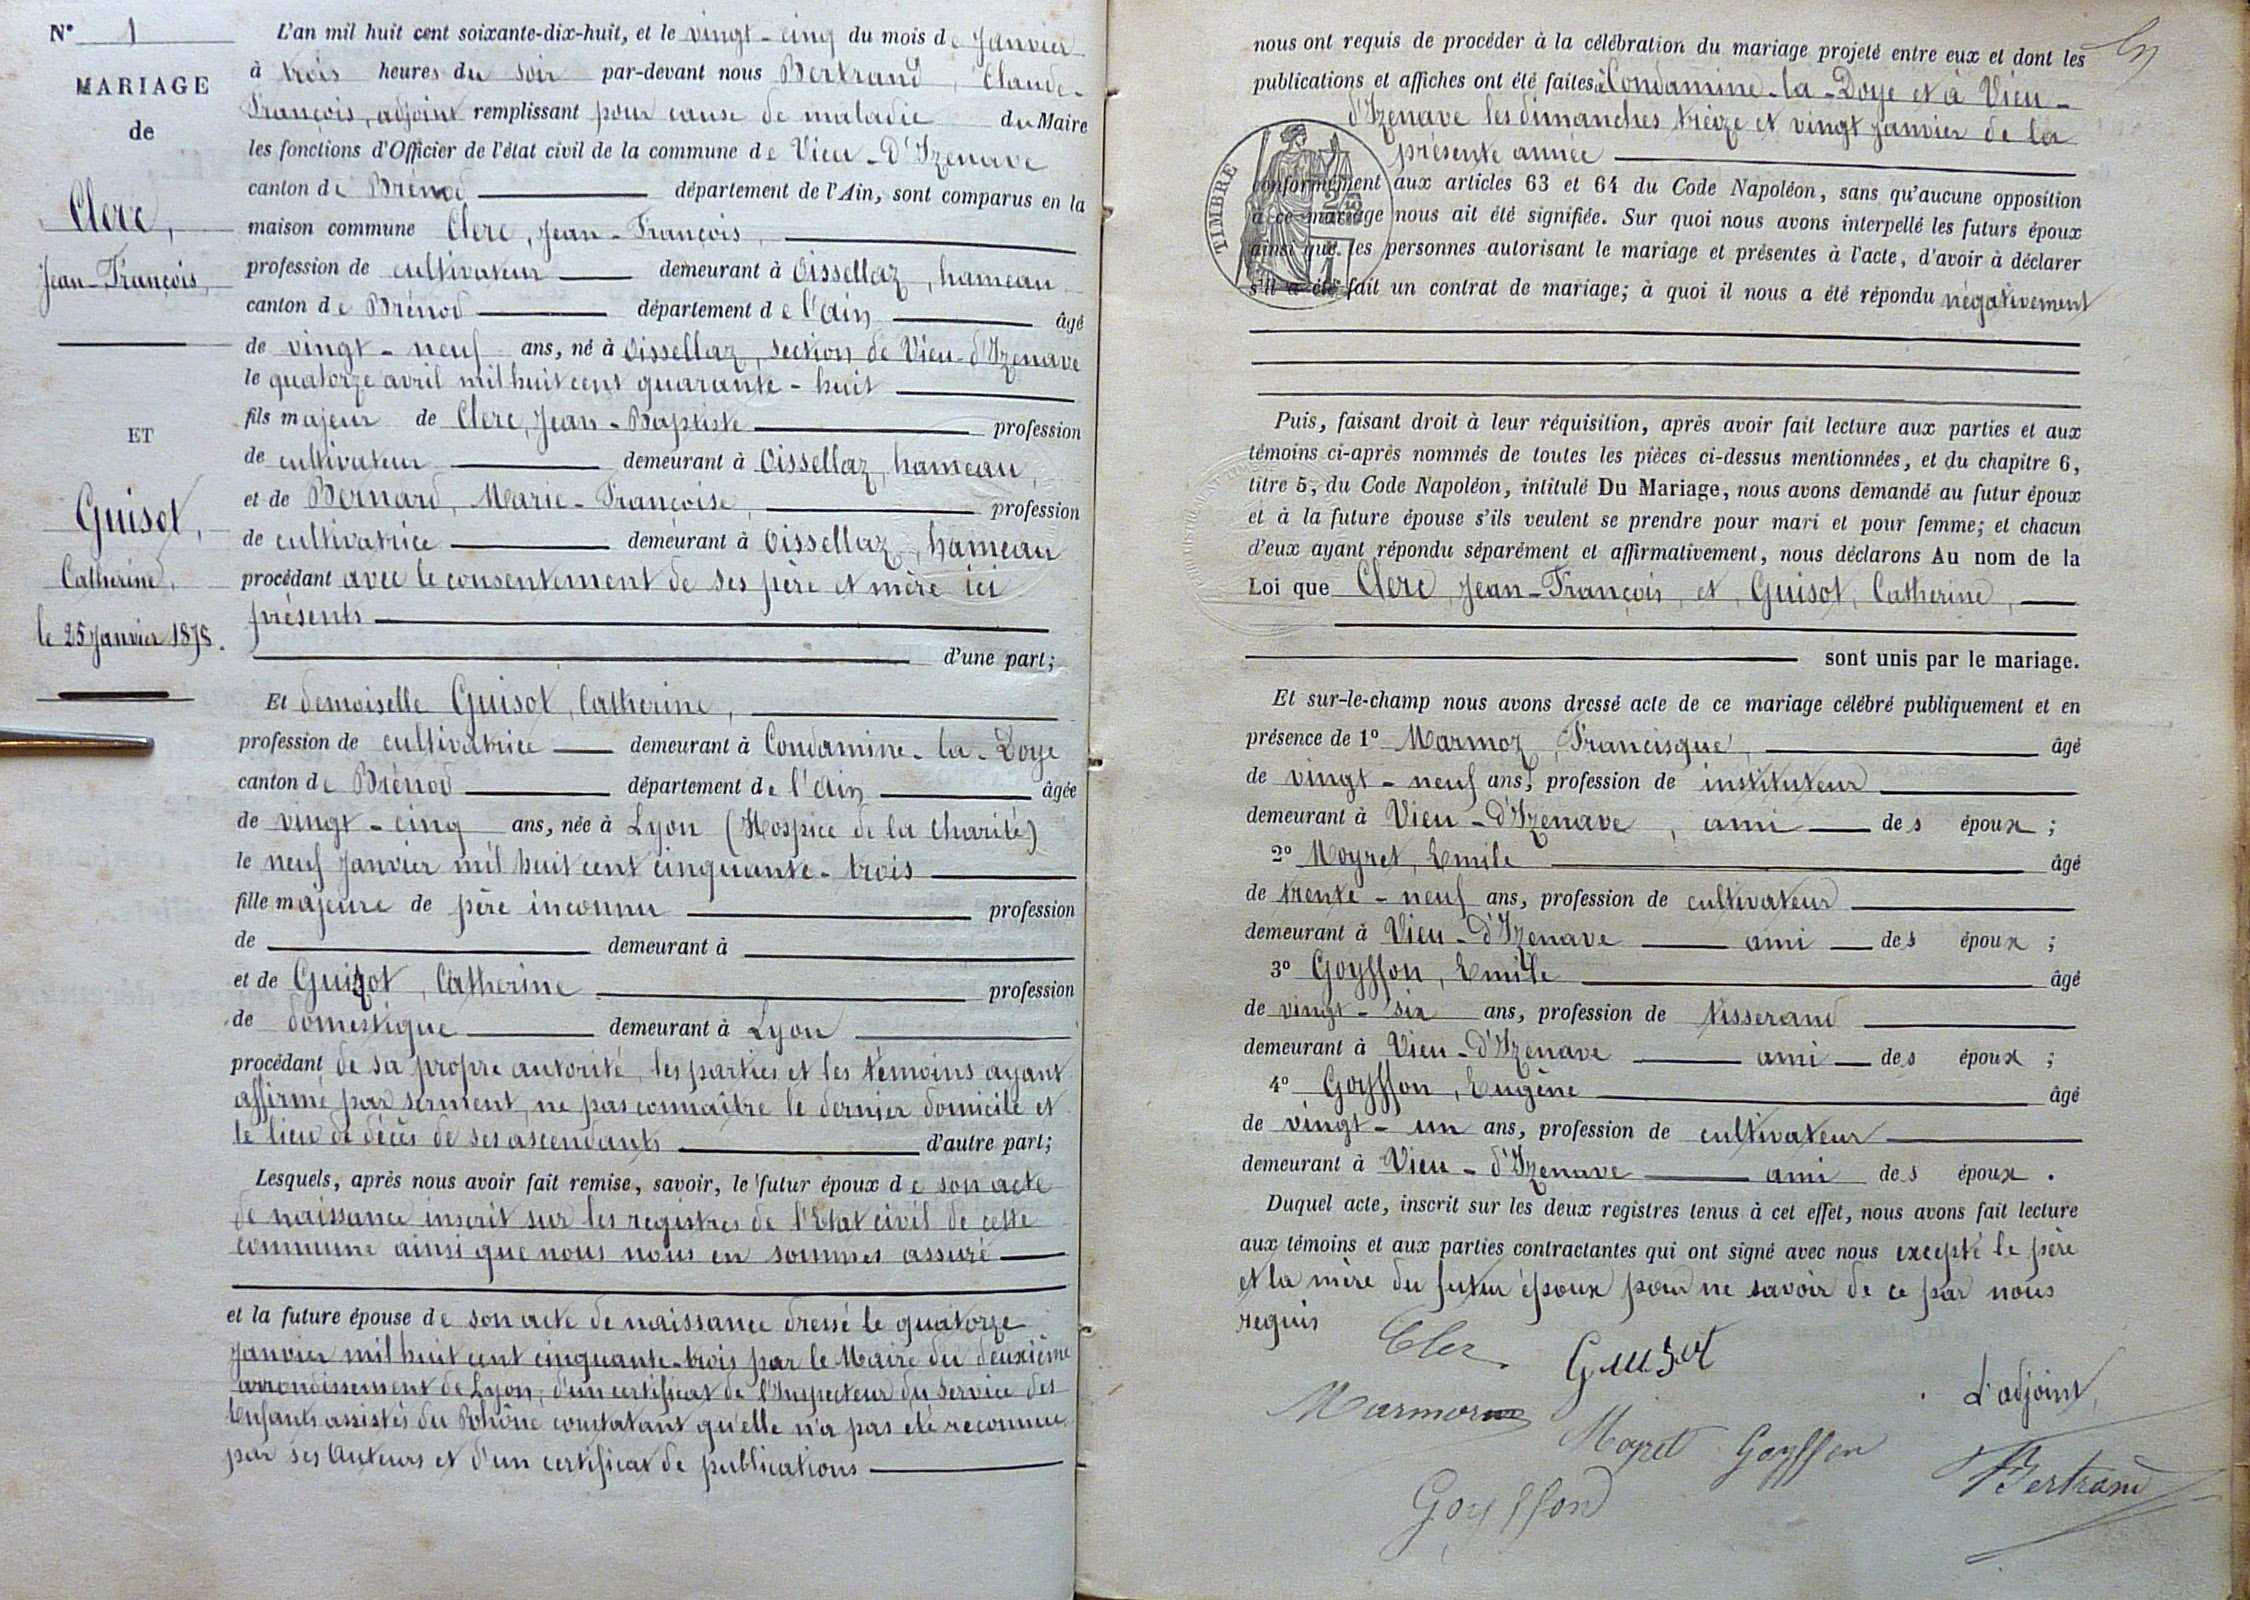 N° 1
MARIAGE
de
Clerc,
Jean-François,
ET
Guisot,
Catherine,
le 25 Janvier 1878.
L'an mil huit cent soixante-dix-huit, et le vingt-cinq du mois de Janvier
à trois heures du soir par-devant nous Bertrand, Claude-
François, adjoint remplissant pour cause de maladie du Maire
les fonctions d'Officier de l'état civil de la commune de Vieu-d'Izenave
canton de Brénod département de l'Ain, sont comparus en la
maison commune Clerc, Jean-François,
profession de cultivateur demeurant à Oissellaz, hameau
canton de Brénod département de l'Ain âgé
de vingt-neuf ans, né à Oissellaz, section de Vieu-d'Izenave
le quatorze avril mil huit cent quarante-huit
fils majeur de Clerc, Jean-Baptiste profession
de cultivateur demeurant à Oissellaz, hameau,
et de Bernard, Marie-Françoise, profession
de cultivatrice demeurant à Oissellaz, hameau
procédant avec le consentement de ses père et mère ici
présents
d'une part;
Et demoiselle Guisot, Catherine,
profession de cultivatrice demeurant à Condamine-la-Doye
canton de Brénod département de l'Ain âgée
de vingt-cinq ans, née à Lyon (Hospice de la Charité)
le neuf Janvier mil huit cent cinquante-trois
fille majeure de père inconnu profession
de demeurant à
et de Guizot, Catherine profession
de domestique demeurant à Lyon
procédant de sa propre autorité, les parties et les témoins ayant
affirmé par serment, ne pas connaître le dernier domicile et
le lieu de décès de ses ascendants d'autre part;
Lesquels, après nous avoir fait remise, savoir, le futur époux de son acte
de naissance inscrit sur les registres de l'Etat civil de cette
commune ainsi que nous nous en sommes assuré
et la future épouse de son acte de naissance dressé le quatorze
Janvier mil huit cent cinquante-trois par le Maire du deuxième
arrondissement de Lyon, d'un certificat de l'Inspecteur du Service des
Enfants assistés du Rhône constatant qu'elle n'a pas été reconnue
par ses Auteurs et d'un certificat de publications
nous ont requis de procéder à la célébration du mariage projeté entre eux et dont les
publications et affiches ont été faites à Condamine-la-Doye et à Vieu-
d'Izenave les dimanches treize et vingt Janvier de la
présente année
TIMBRE
conformément aux articles 63 et 64 du Code Napoléon, sans qu'aucune opposition
à ce mariage nous ait été signifiée. Sur quoi nous avons interpellé les futurs époux
ainsi que les personnes autorisant le mariage et présentes à l'acte, d'avoir à déclarer
s'il a été fait un contrat de mariage; à quoi il nous a été répondu négativement
Puis, faisant droit à leur réquisition, après avoir fait lecture aux parties et aux
témoins ci-après nommés de toutes les pièces ci-dessus mentionnées, et du chapitre 6,
titre 5, du Code Napoléon, intitulé Du Mariage, nous avons demandé au futur époux
et à la future épouse s'ils veulent se prendre pour mari et pour femme; et chacun
d'eux ayant répondu séparément et affirmativement, nous déclarons Au nom de la
Loi que Clerc, Jean-François, et Guisot, Catherine,
sont unis par le mariage.
Et sur-le-champ nous avons dressé acte de ce mariage célébré publiquement et en
présence de 1° Marmoz, Francisque, âgé
de vingt-neuf ans, profession de instituteur
demeurant à Vieu-d'Izenave, ami des époux;
2° Moyret, Emile âgé
de trente-neuf ans, profession de cultivateur
demeurant à Vieu-d'Izenave ami des époux;
3° Goyffon, Emile âgé
de vingt-six ans, profession de tisserand
demeurant à Vieu-d'Izenave ami des époux;
4° Goyffon, Eugène âgé
de vingt-un ans, profession de cultivateur
demeurant à Vieu-d'Izenave ami des époux.
Duquel acte, inscrit sur les deux registres tenus à cet effet, nous avons fait lecture
aux témoins et aux parties contractantes qui ont signé avec nous excepté le père
et la mère du futur époux pour ne savoir de ce par nous
requis
Clerc Guizot
L'adjoint,
Marmoz Moyret Goyffon Bertrand
Goyffon